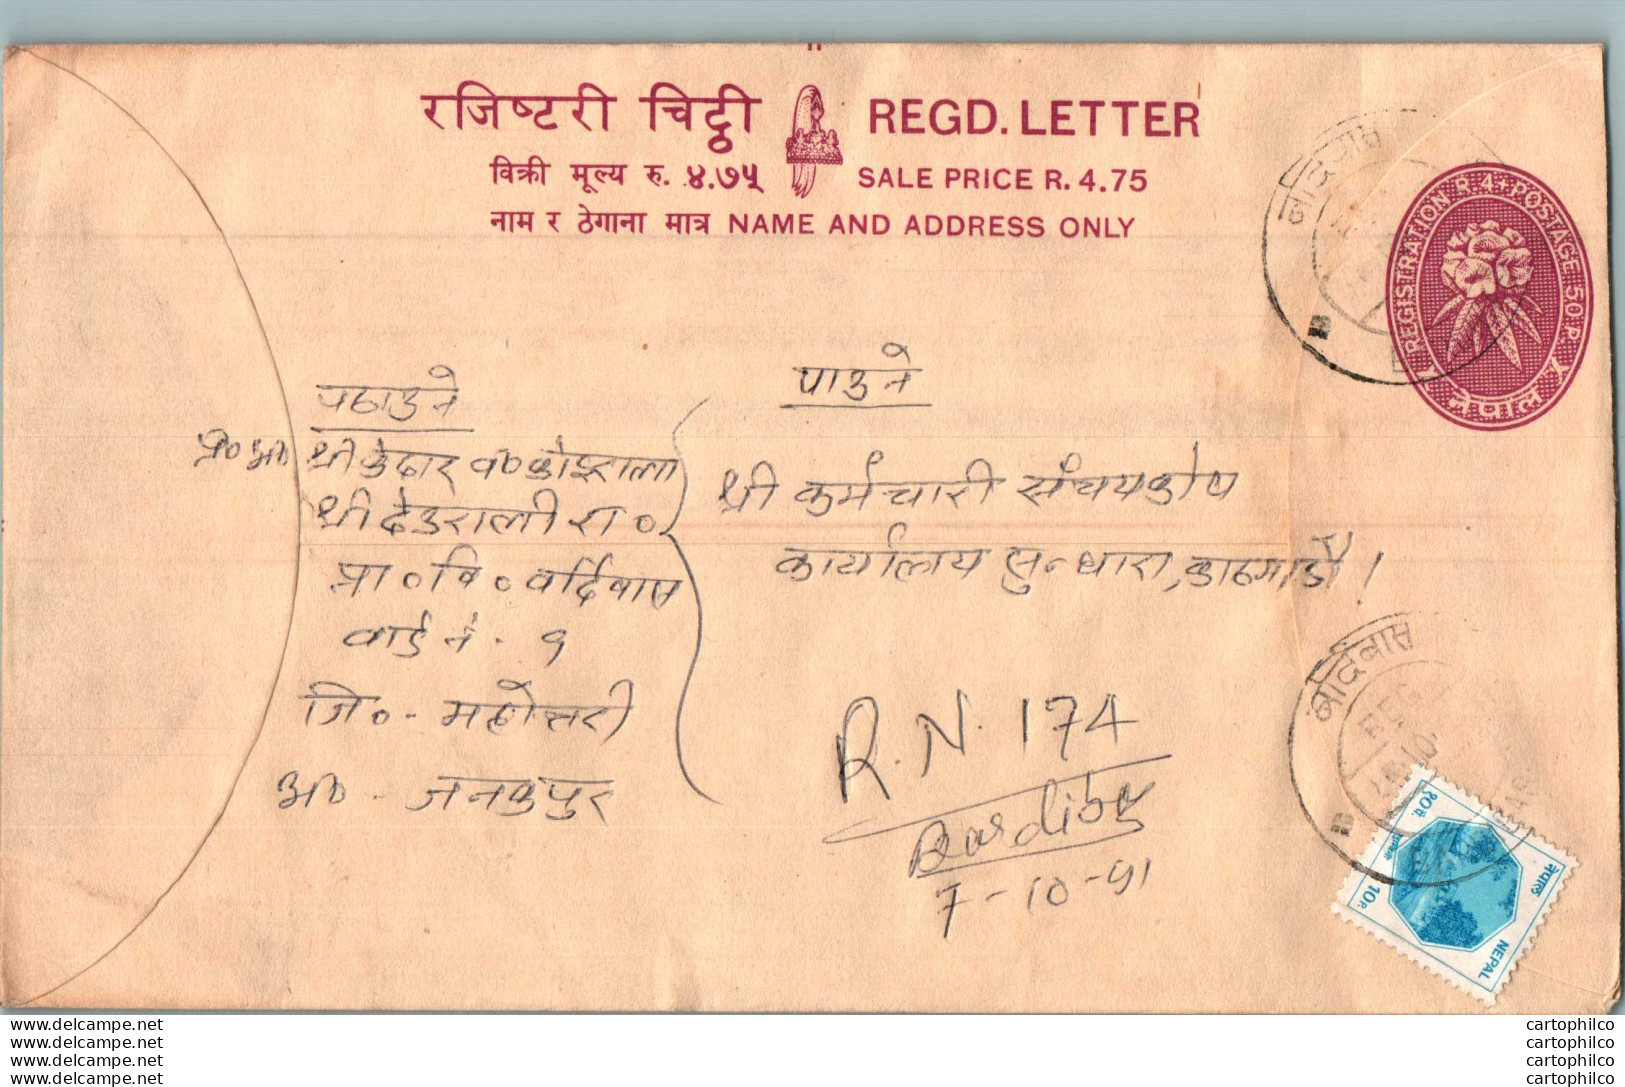 रजिष्टरी चिट्ठी REGD. LETTER
विक्री मूल्य रु. ४.७५ SALE PRICE R. 4.75
नाम र ठेगाना मात्र NAME AND ADDRESS ONLY
REGISTRATION R. 4, POSTAGE 50 P.
नेपाल
बर्दिबास
पठाउने
प्र० अ० श्री केदार ब० कोइराला
श्री देउराली रा०
प्रा० वि० बर्दिवास
वार्ड नं. - १
जि० - महोत्तरी
अ० - जनकपुर
पाउने
श्री कर्मचारी संचयकोष
कार्यालय सुन्धारा, काठमाडौं ।
R. N. 174
Bardibas
7-10-91
बर्दिबास
B
१०पै.
नेपाल
10P.
NEPAL
www.delcampe.net
www.delcampe.net
www.delcampe.net
www.delcampe.net
cartophilco
cartophilco
cartophilco
cartophilco